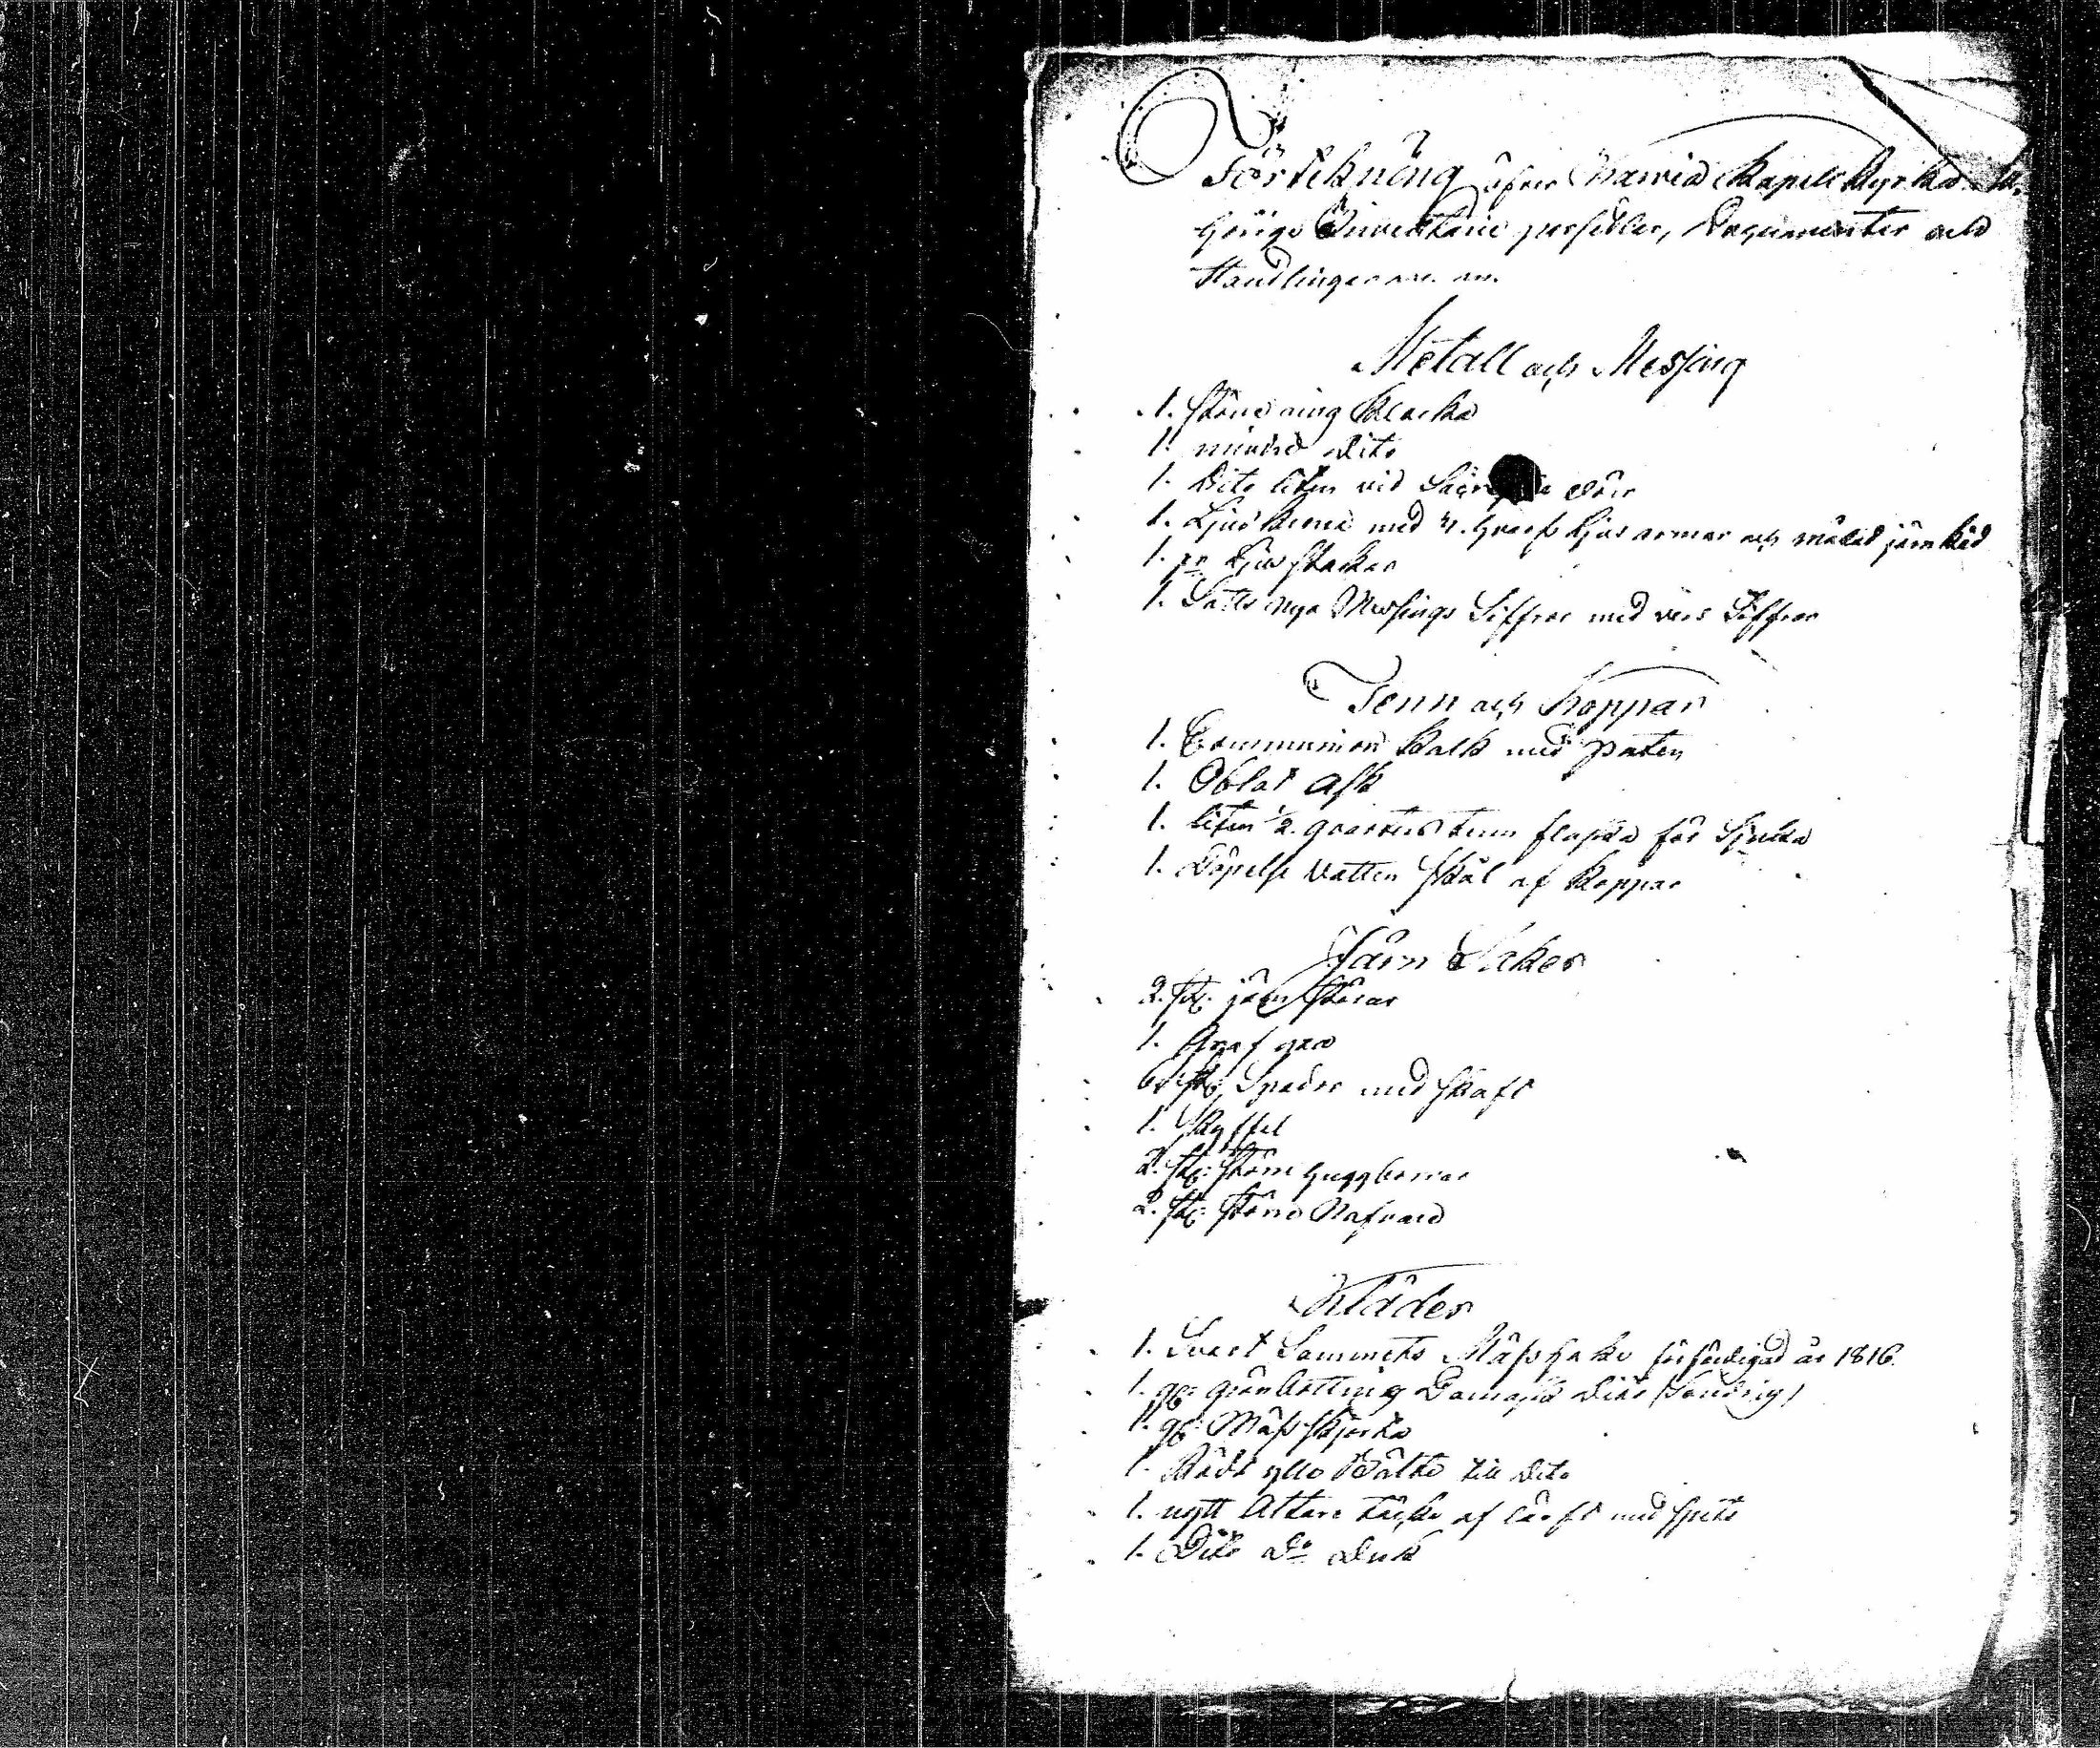 Förtekning öfver Karvia Kapell Kyrka till
hörige Inventarie persedlar, Documenter och
Handlingar m. m.
Metall och Messing
1. större ring klocka
1. mindre dito
1. Dito liten vid dörr
1. Ljus krona med 4. hvarf ljus armar och målad järn käd
1. pr Ljus stakar
1. Satts nya Messings Siffror med vers Siffror
Tenn och Koppar
1. Communion kalk med paten
1. Oblat Ask
1. liten 1/2 qvarters tenn flaska för Sjuka
1. Döpelse Vatten skål af Koppar
Järn Saker
2. st: järn störar
1. Graf
st: Spadar med skaft
1. Skyffel
2. st: större huggborrar
2. st: större Nafvare
Kläder
1. Svart Sammets Mässhake förfärdigad år 1816.
1. gl: grön Damask dito (Söndrig)
1. gl: Mäss skjorta
1. Rödt ylle Bälte till dito
1. nytt Altare täcke af lärft med spets
1. Dito do duk